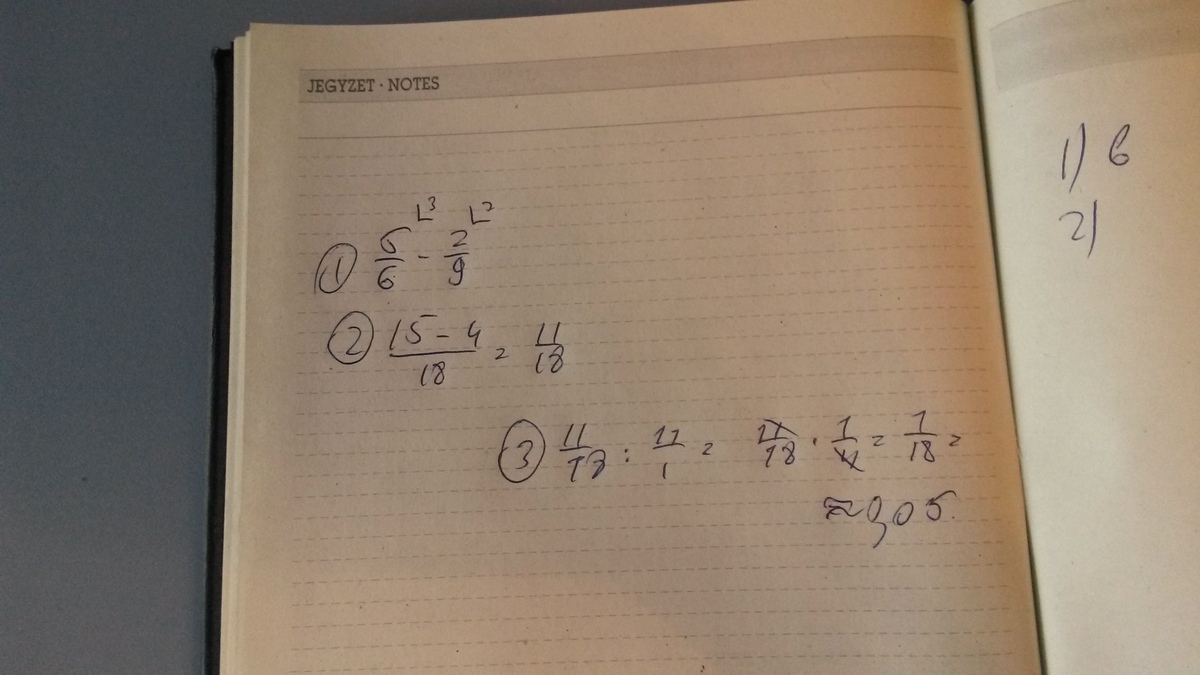 JEGYZET · NOTES
① 5/6 ⌊3 - 2/9 ⌊2
② (15 - 4)/18 = 11/18
③ 11/18 : 11/1 = 11/18 · 1/11 = 1/18 =
≈ 0,05
1) 6
2)